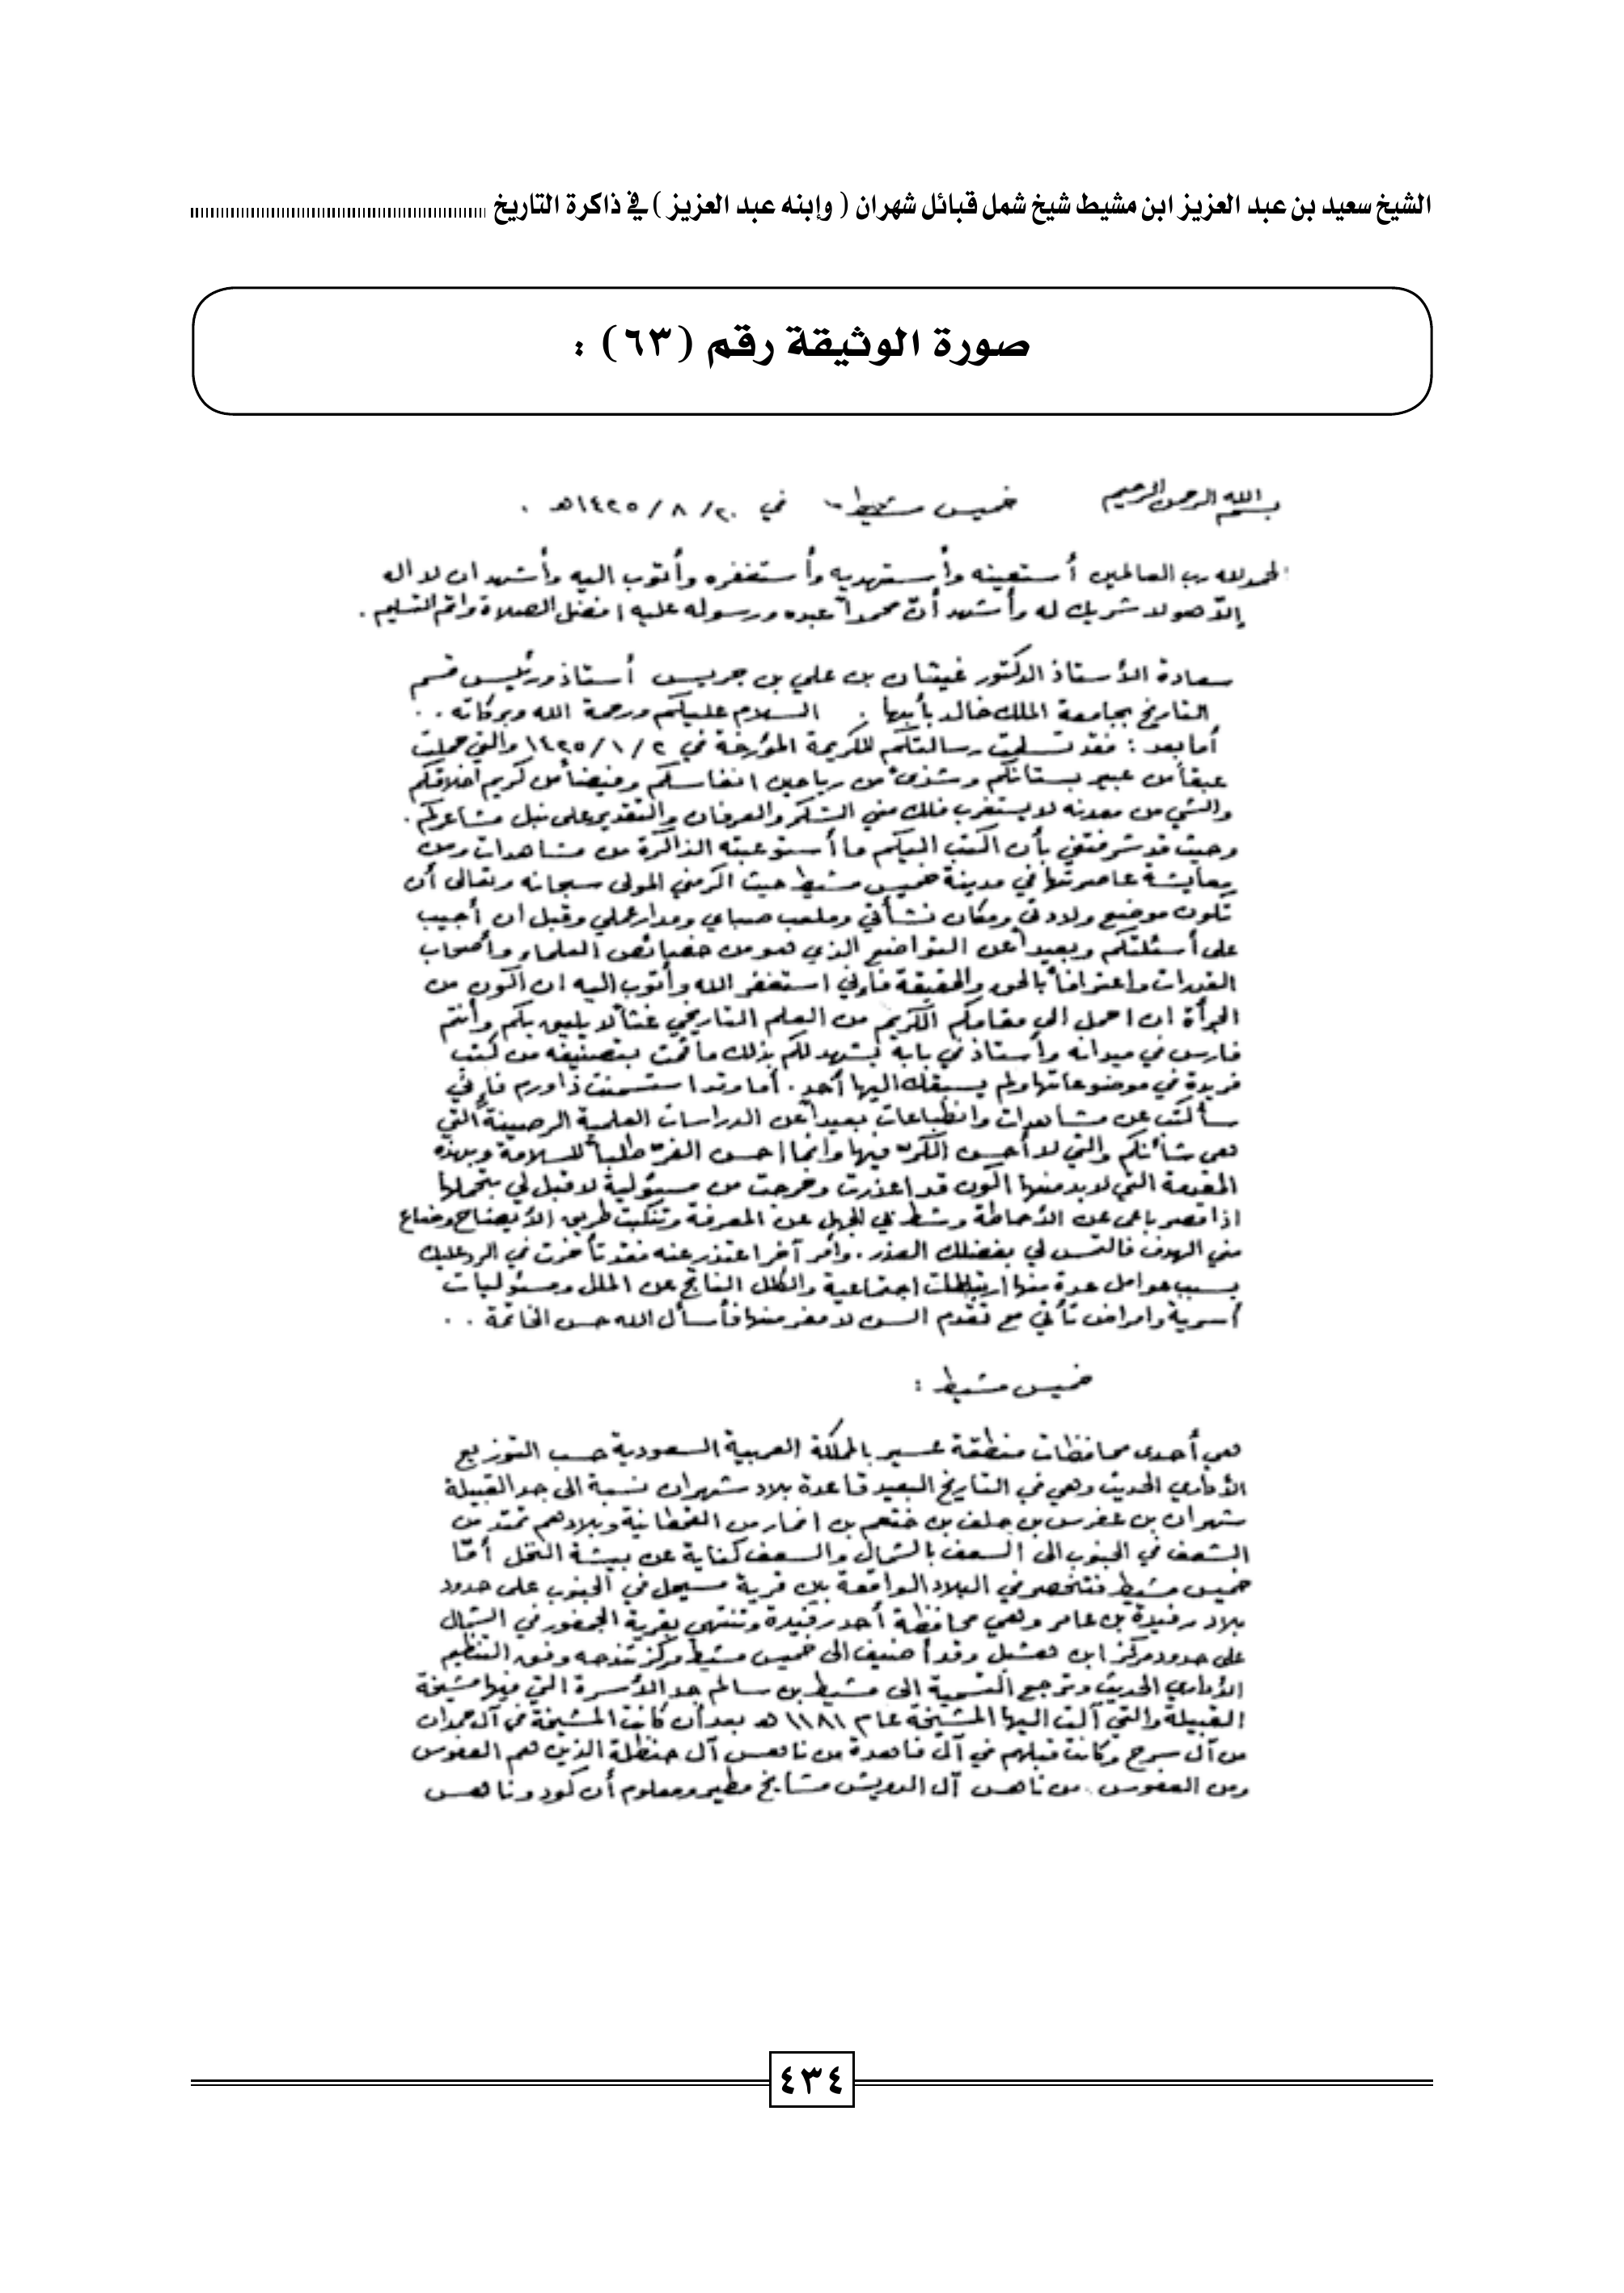 الشيخ سعيد بن عبد العزيز ابن مشيط شيخ شمل قبائل شهران ( وإبنه عبد العزيز ) في ذاكرة التاريخ
صورة الوثيقة رقم (٦٣) :
بسم الله الرحمن الرحيم خميس مشيط في ٢٠/ ٨ / ١٤٢٥هـ .
الحمد لله رب العالمين أستعينه وأستهديه وأستغفره وأتوب اليه وأشهد ان لا اله
إلاّ هو لا شريك له وأشهد أنّ محمداً عبده ورسوله عليه افضل الصلاة واتم التسليم .
سعادة الأستاذ الدكتور غيثان بن علي بن جريس أستاذ ورئيس قسم
التاريخ بجامعة الملك خالد بأبها . السلام عليكم ورحمة الله وبركاته . .
أما بعد : فقد تسلمت رسالتكم الكريمة المؤرخة في ١/٢ /١٤٢٥ والتي حملت
عبقاً من عبير بستانكم وشذىً من رياحين انفاسكم وفيضاً من كريم اخلاقكم
والشي من معدنه لا يستغرب فلك مني الشكر والعرفان والتقدير على نبل مشاعركم .
وحيث قد شرفتني بأن اكتب اليكم ما أستوعبته الذاكرة من مشاهدات ومن
معايشة عاصرتها في مدينة خميس مشيط حيث اكرمني المولى سبحانه وتعالى أن
تكون موضع ولادتي ومكان نشأتي وملعب صباي ومدار عملي وقبل ان أجيب
على أسئلتكم وبعيداً عن التواضع الذي هو من خصائص العلماء وأصحاب
القدرات واعترافاً بالحق والحقيقة فإني استغفر الله وأتوب اليه ان اكون من
الجرأة ان احمل الى مقامكم الكريم من العلم التاريخي غثاً لا يليق بكم وأنتم
فارس في ميدانه وأستاذ في بابه يشهد لكم بذلك ما قمت بتصنيفه من كتب
فريدة في موضوعاتها ولم يسبقك اليها أحد . أما وقد استسمنت ذا ورم فإني
سأكتب عن مشاهدات وانطباعات بعيداً عن الدراسات العلمية الرصينة التي
هي شأنكم والتي لا أحسن الكرّ فيها وانما احسن الفرّ طلباً للسلامة وبهذه
المقدمة التي لابد منها اكون قد اعذرت وخرجت من مسئولية لا قبل لي بتحملها
اذا قصر باعي عن الأحاطة وشط بي الجهل عن المعرفة وتنكبت طريق الأيضاح وضاع
مني الهدف فالتمس لي بفضلك العذر . وأمر آخر اعتذر عنه فقد تأخرت في الرد عليك
بسبب عوامل عدة منها ارتباطات اجتماعية والكلل الناتج عن الملل ومسئوليات
أسرية وامراض تأتي مع تقدم السن لا مفر منها فأسأل الله حسن الخاتمة . .
خميس مشيط :
هي أحدى محافظات منطقة عسير بالمملكة العربية السعودية حسب التوزيع
الأداري الحديث وهي في التاريخ البعيد قاعدة بلاد شهران نسبة الى جد القبيلة
شهران بن عفرس بن حلف بن خثعم بن انمار من القحطانية وبلادهم تمتد من
الشعف في الجنوب الى السعف بالشمال والسعف كناية عن بيشة النخل أمّا
خميس مشيط فتنحصر في البلاد الواقعة بين قرية مسيحل في الجنوب على حدود
بلاد رفيدة بن عامر وهي محافظة أحد رفيدة وتنتهي بقرية الجمفور في الشمال
على حدود مركز ابن هشبل وقد أضيف الى خميس مشيط مركز تندحه وفق التنظيم
الأداري الحديث وترجع التسمية الى مشيط بن سالم جد الأسرة التي فيها مشيخة
القبيلة والتي آلت اليها المشيخة عام ١١٨١ هـ بعد أن كانت المشيخة في آل حمدان
من آل سرح وكانت قبلهم في آل فاهدة من ناهس آل حنظلة الذين هم العفوس
ومن العفوس من ناهس آل الدويش مشايخ مطير ومعلوم أن كود وناهس
٤٣٤